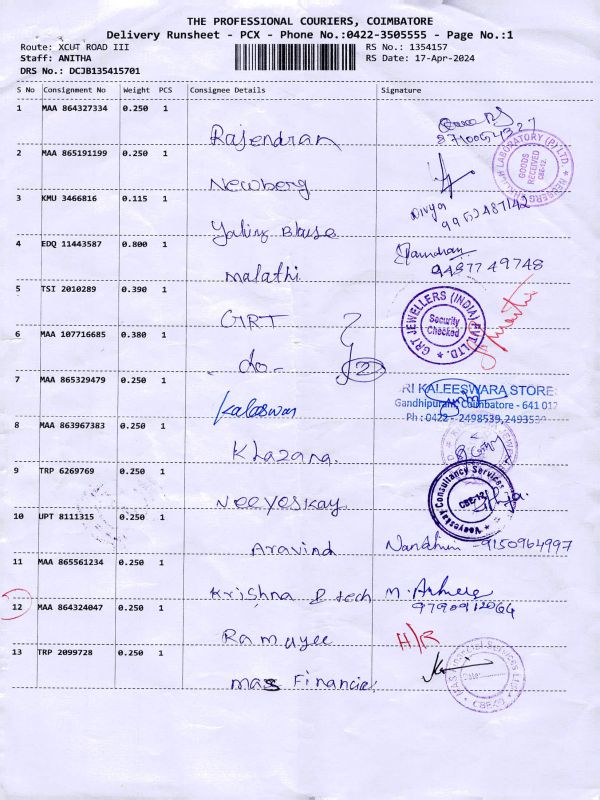 THE PROFESSIONAL COURIERS, COIMBATORE
Delivery Runsheet - PCX - Phone No.:0422-3505555 - Page No.:1
Route: XCUT ROAD III
RS No.: 1354157
Staff: ANITHA
RS Date: 17-Apr-2024
DRS No.: DCJB135415701
S No Consignment No Weight PCS Consignee Details Signature
1 MAA 864327334 0.250 1
Rajendran
2 MAA 865191199 0.250 1
Newberg
GOODS RECEIVED
CBE-12.
3 KMU 3466816 0.115 1
Divya
9952487142
4 EDQ 11443587 0.800 1
Malathi
9487749748
5 TSI 2010289 0.390 1
GRT
GRT JEWELLERS (INDIA) PVT. LTD.
Security Checked
6 MAA 107716685 0.380 1
-do-
2
7 MAA 865329479 0.250 1
Kaleswari
SRI KALEESWARA STORES
Gandhipuram, Coimbatore - 641 012
Ph : 0422 - 2498539,
8 MAA 863967383 0.250 1
Khazana
9 TRP 6269769 0.250 1
Neeyeskay
Neeyeskay Consultancy Services
CBE-12
10 UPT 8111315 0.250 1
Aravind
Nandhini - 9150964997
11 MAA 865561234 0.250 1
Krishna P tech
12 MAA 864324047 0.250 1
Ramayee
H/R
13 TRP 2099728 0.250 1
Mas Financial
Financial Services Ltd.